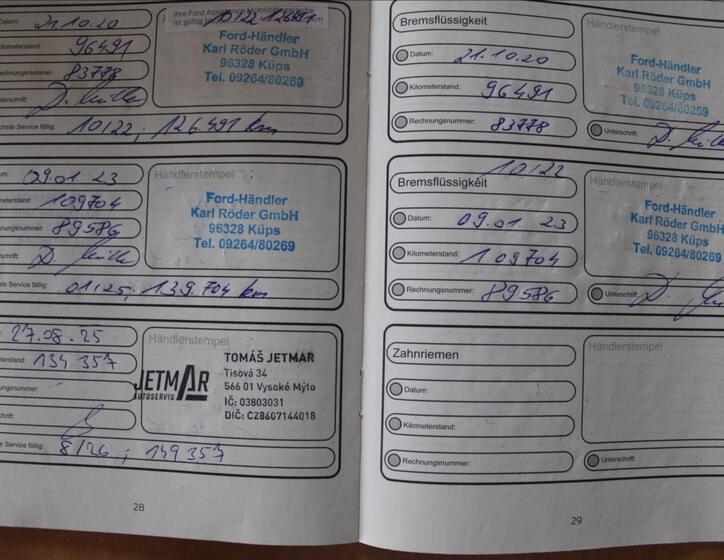 Datum:
21.10.20
Kilometerstand:
96491
Rechnungsnummer:
83778
terschrift:
chste Service fällig:
10122; 126.491 km
Ihre Ford Assistance Mobilitätsgarantie
ist gültig
10122 126491
km
Ford-Händler
Karl Röder GmbH
96328 Küps
Tel. 09264/80269
um:
09.01.23
meterstand:
109704
nungsnummer:
89586
schrift:
te Service fällig:
01125; 139.704 km
Händlerstempel
Ford-Händler
Karl Röder GmbH
96328 Küps
Tel. 09264/80269
27.08.25
terstand:
134 357
ungsnummer:
chrift:
e Service fällig:
8/26; 149 357
Händlerstempel
JETMAR
AUTOSERVIS
TOMÁŠ JETMAR
Tisová 34
566 01 Vysoké Mýto
IČ: 03803031
DIČ: CZ8607144018
28
Bremsflüssigkeit
Datum:
21.10.20
Kilometerstand:
96491
Rechnungsnummer:
83778
Händlerstempel
Ford-Händler
Karl Röder GmbH
96328 Küps
Tel. 09264/80269
Unterschrift:
10122
Bremsflüssigkeit
Datum:
09.01.23
Kilometerstand:
109704
Rechnungsnummer:
89586
Händlerstempel
Ford-Händler
Karl Röder GmbH
96328 Küps
Tel. 09264/80269
Unterschrift:
Zahnriemen
Datum:
Kilometerstand:
Rechnungsnummer:
Händlerstempel
Unterschrift:
29